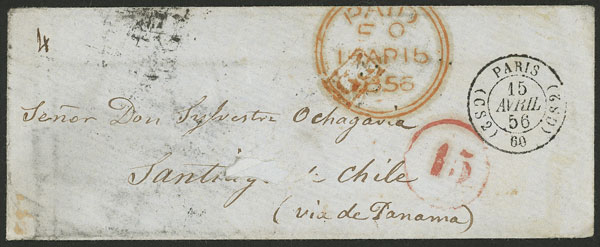 4
PAID
14AP15
1856
PARIS
15
AVRIL
56
60
Señor Don Sylvestre Ochagavia
15
Santiag Chile
(via de Panama)